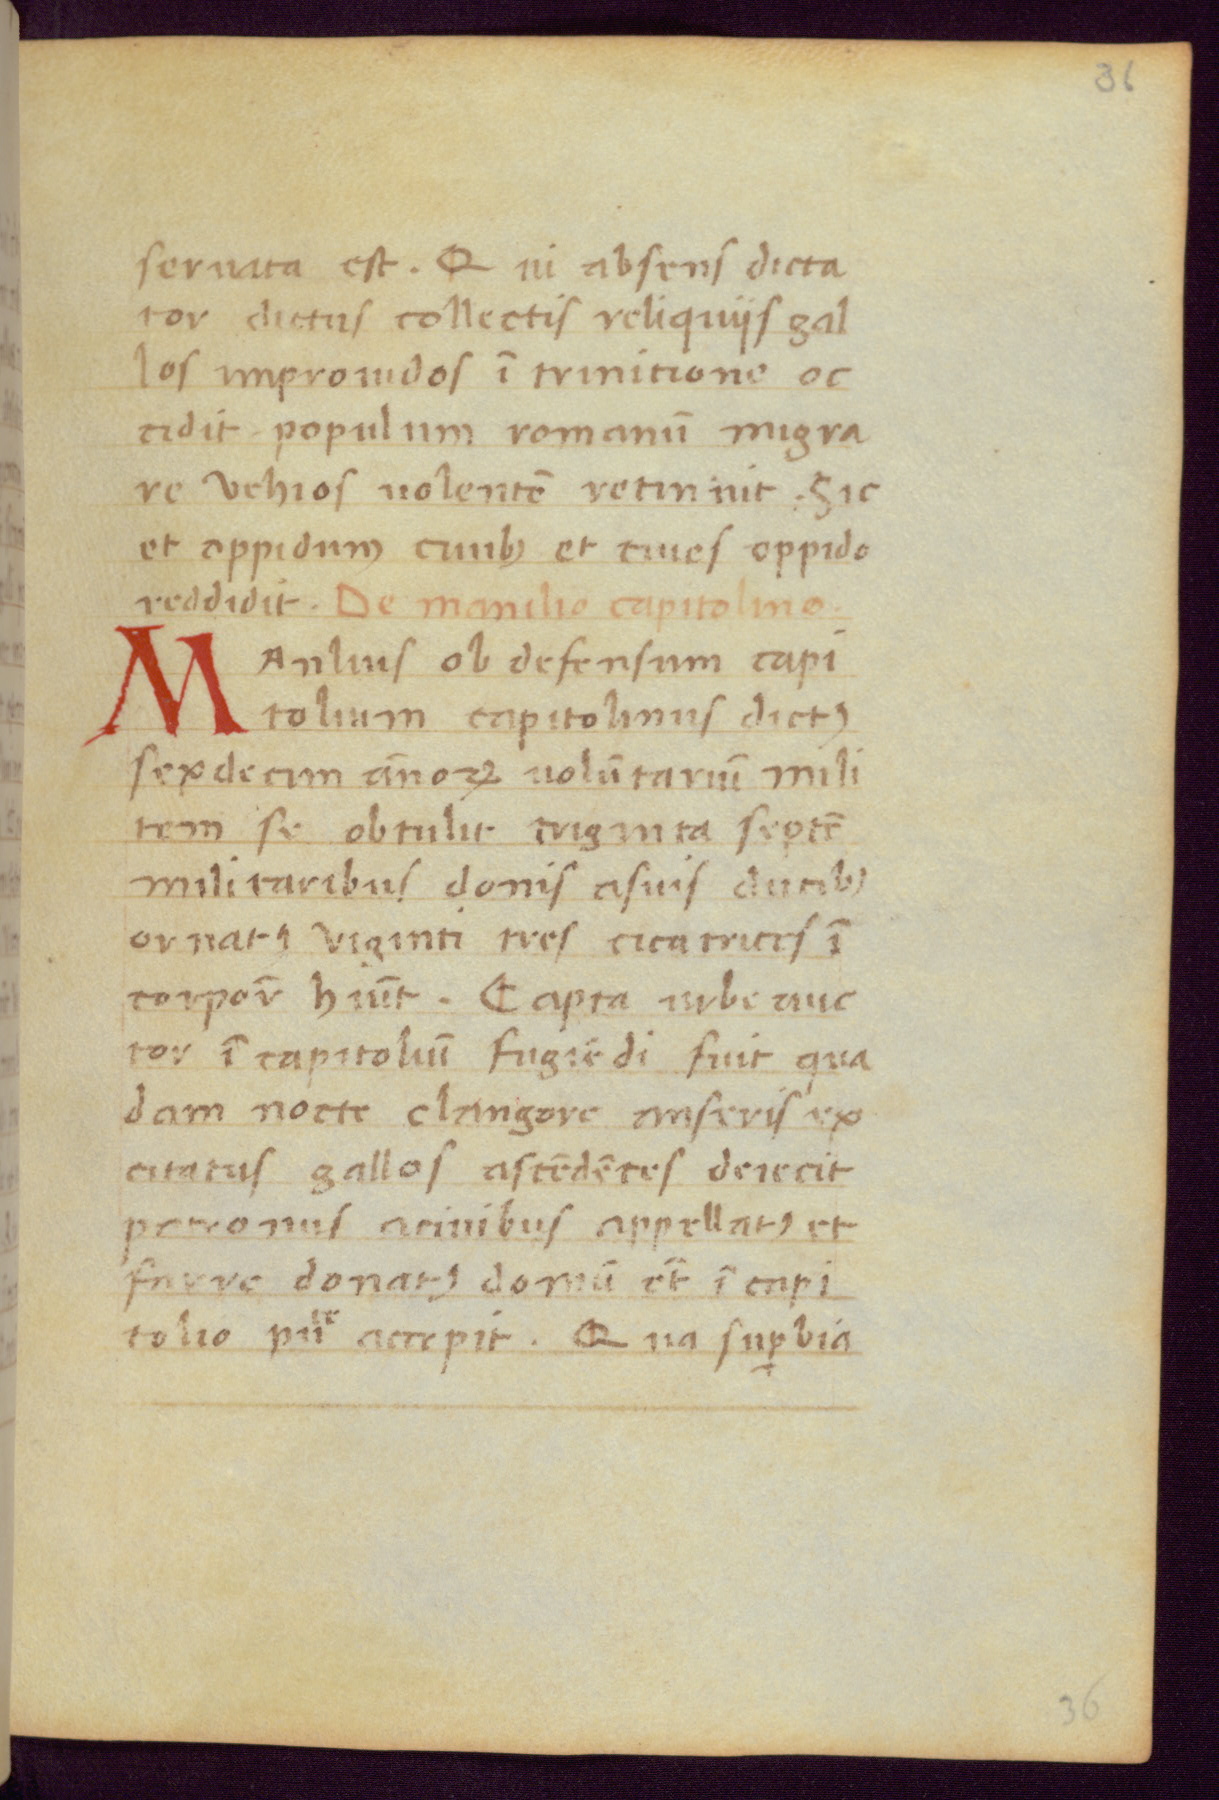 36
seruata est. Qui absens dicta
tor dictus collectis reliquijs gal
los improuidos ī trinitione oc
cidit populum romanū migra
re vehios uolentē retinuit. Sic
et oppidum ciuibꝫ et ciues oppido
reddidit. De manilio capitolino.
MAnlius ob defensum capi
tolium capitolinus dictꝰ
sexdecim ānoꝝ volūtariū mili
tem se obtulit triginta septē
militaribus donis asuis ducibꝫ
ornatꝰ viginti tres cicatrices ī
corpor̄ hūit. Capta urbe auc
tor ī capitoliū fugiēdi fuit qua
dam nocte clangore anseris ex
citatus gallos ascēdētes deiecit
patronus aciuibus appellatꝰ et
farre donatꝰ domū et̄ ī capi
tolio pūlꝰ accepit. Qua suꝑbia
36